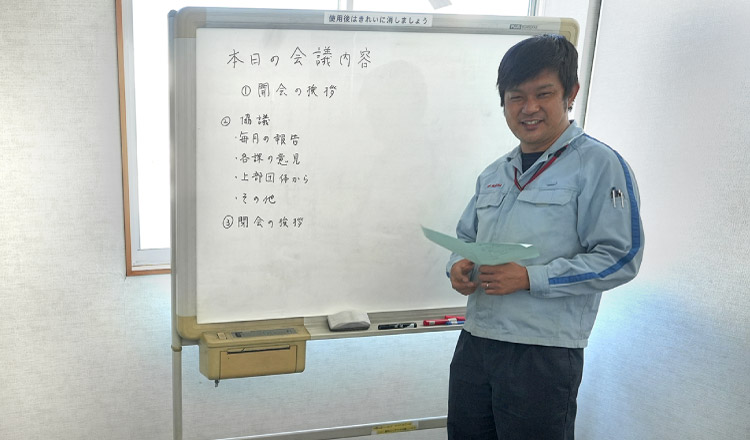 使用後はきれいに消しましょう
PLUS
本日の会議内容
①開会の挨拶
②協議
・毎月の報告
・各課の意見
・上部団体から
・その他
③閉会の挨拶